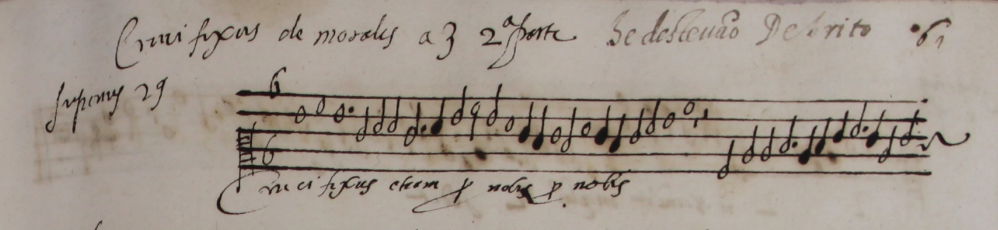 Crucifixus de morales a 3 2ª parte He destevão De brito 61
Supremus 29
Crucifixus etiam pro nobis pro nobis